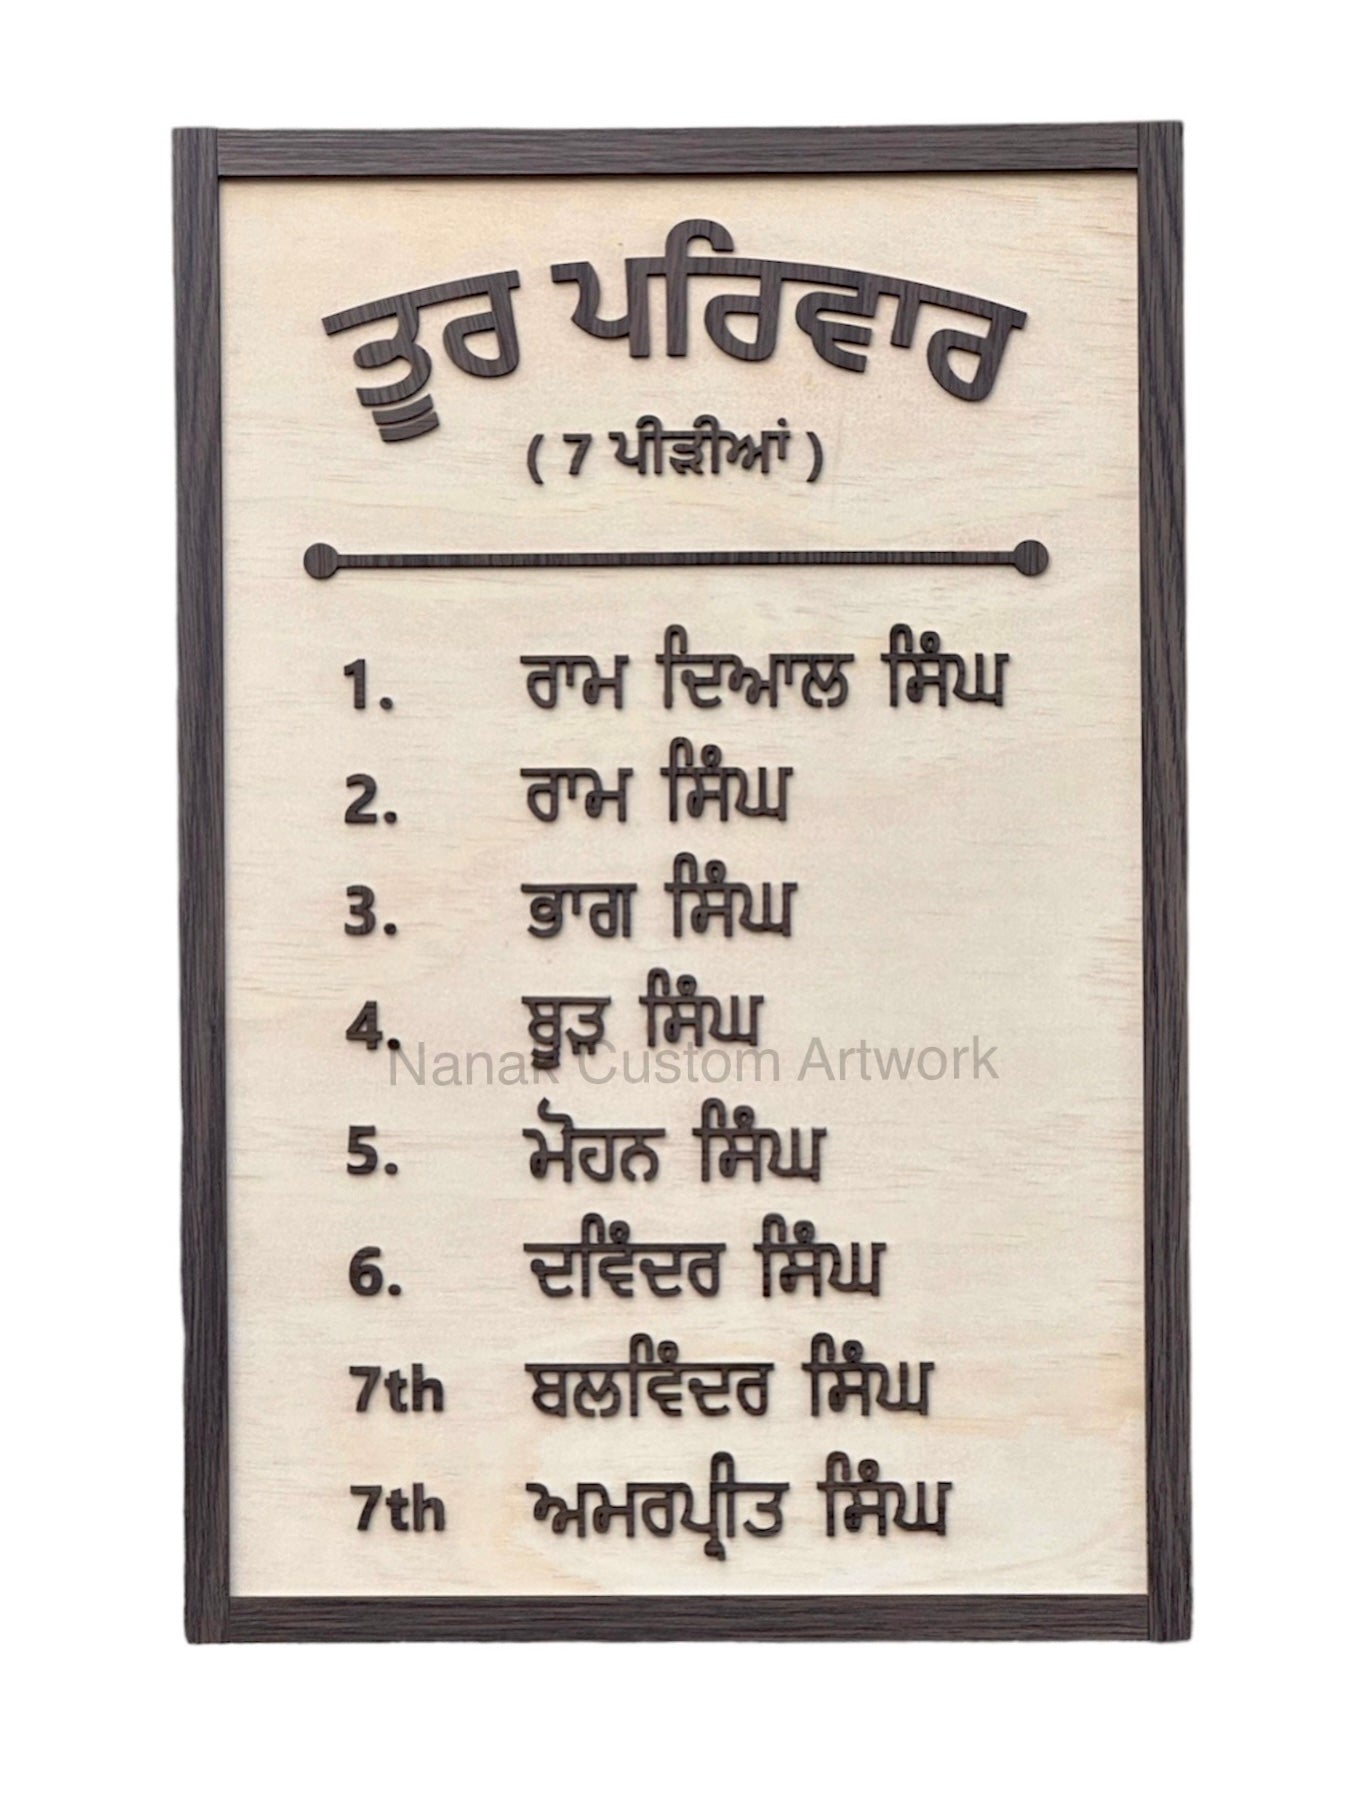 ਤੂਰ ਪਰਿਵਾਰ
( 7 ਪੀੜੀਆਂ )
1. ਰਾਮ ਦਿਆਲ ਸਿੰਘ
2. ਰਾਮ ਸਿੰਘ
3. ਭਾਗ ਸਿੰਘ
4. ਬੂੜ ਸਿੰਘ
Nanak Custom Artwork
5. ਮੋਹਨ ਸਿੰਘ
6. ਦਵਿੰਦਰ ਸਿੰਘ
7th ਬਲਵਿੰਦਰ ਸਿੰਘ
7th ਅਮਰਪ੍ਰੀਤ ਸਿੰਘ